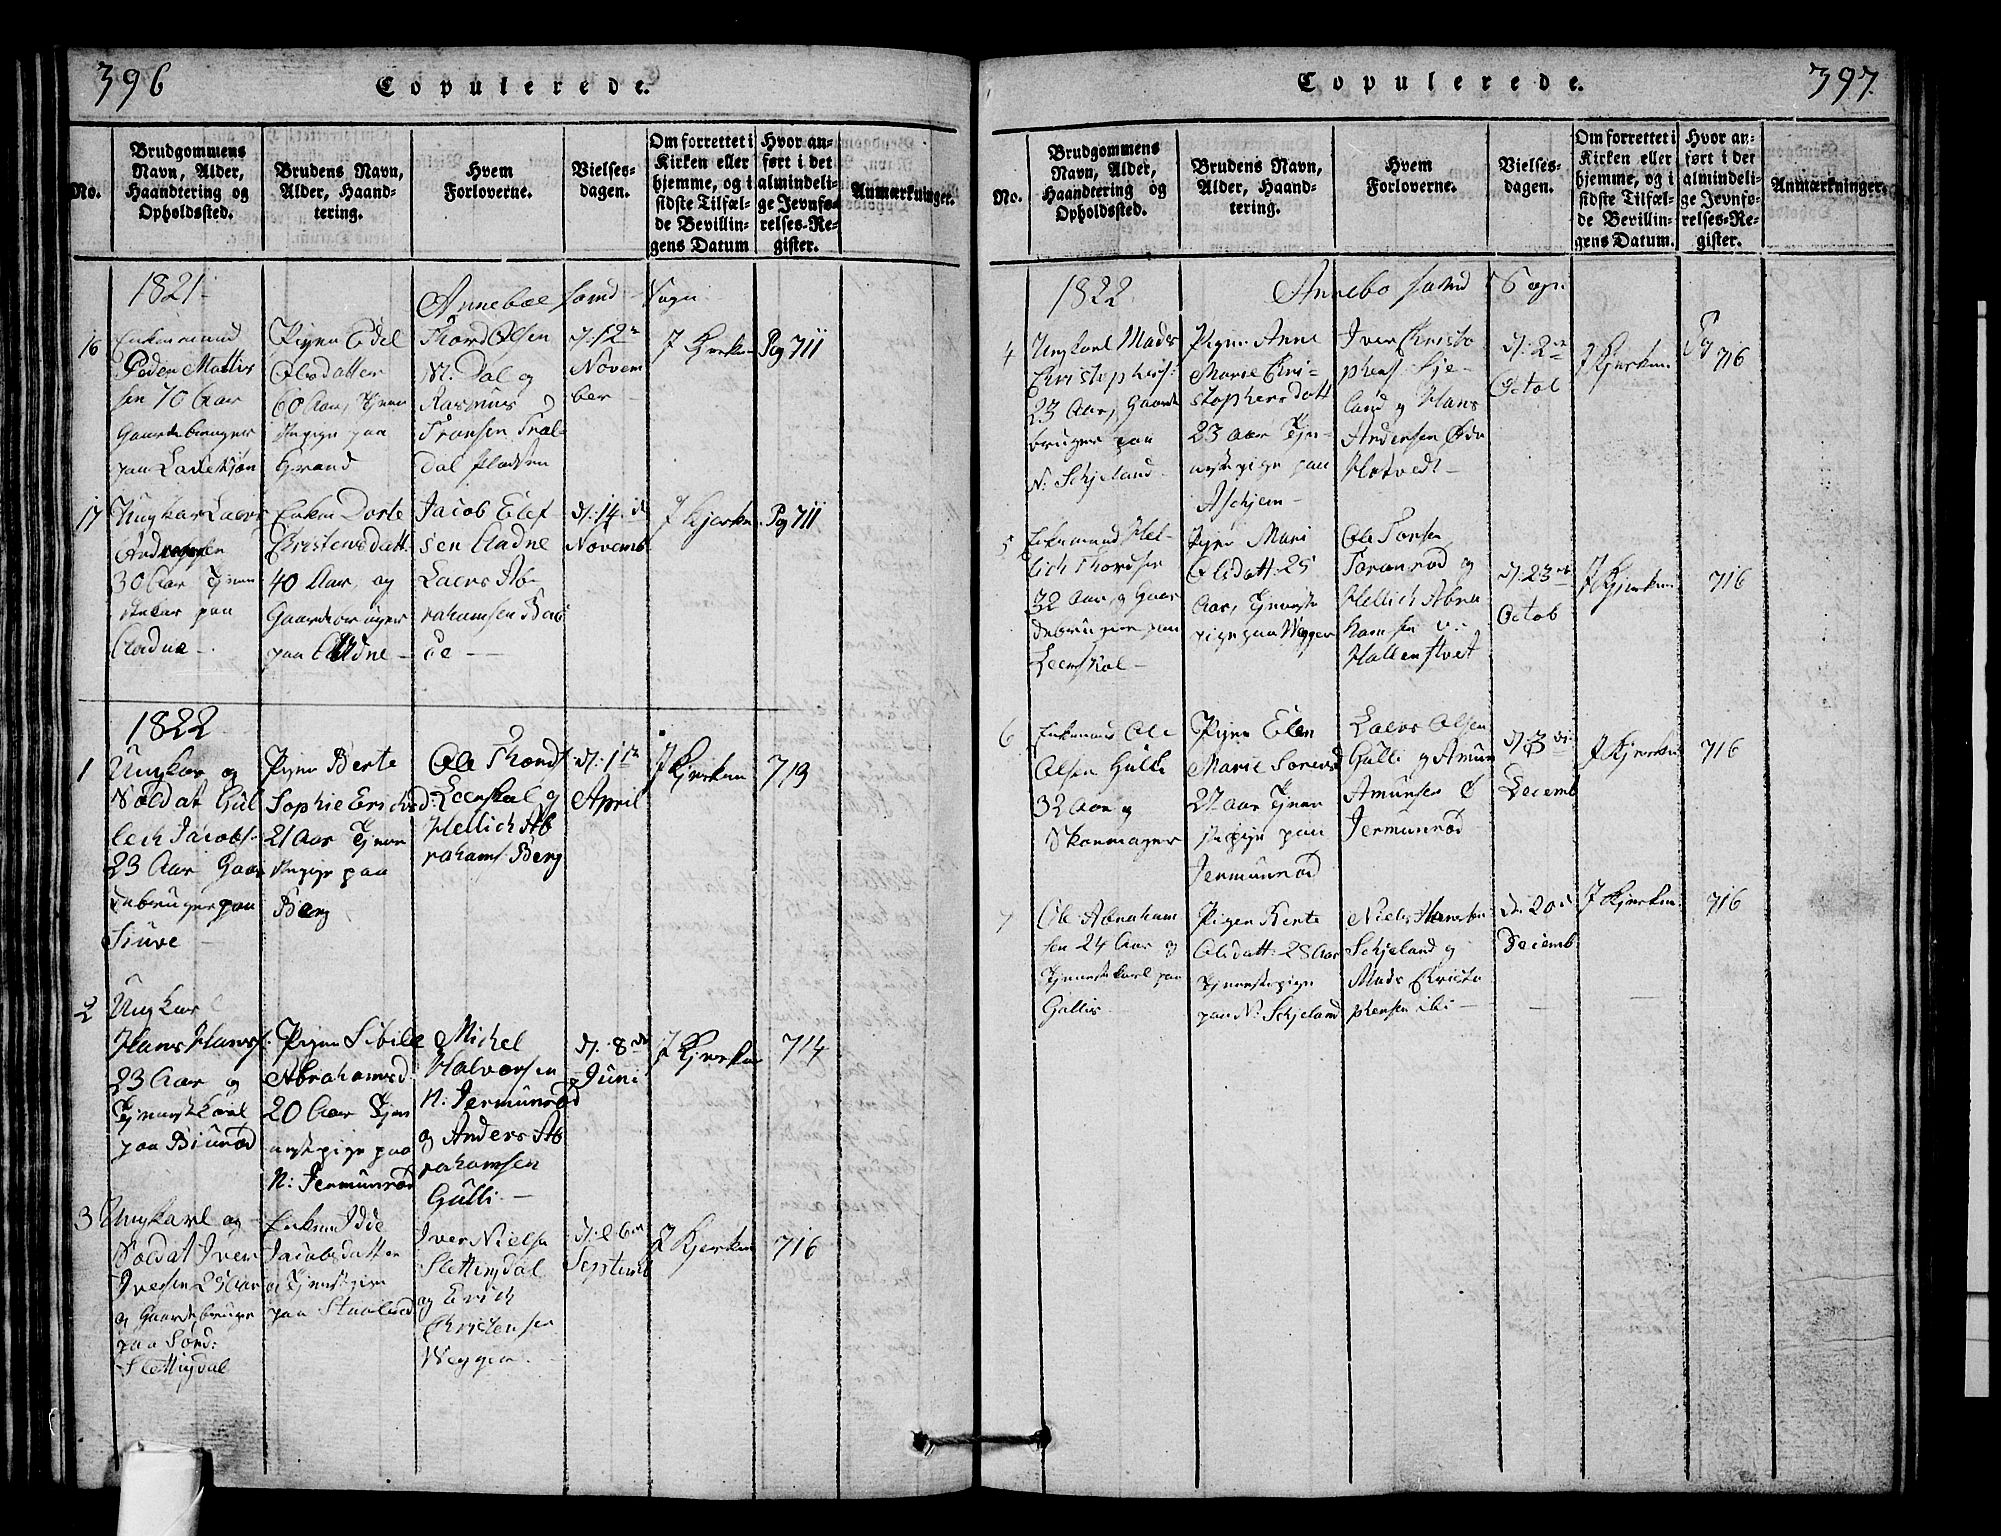 396
Copulerede.
No.
Brudgommens
Navn, Alder,
Haandtering og
Opholdssted.
Brudens Navn,
Alder, Haand-
tering.
Hvem
Forloverne.
Vielses-
dagen.
Om forrettet i
Kirken eller
hjemme, og i
sidste Tilfæl-
de Bevillin-
gens Datum
Hvor an-
ført i det
almindeli-
ge Jevnfø-
relses-Re-
gister.
Anmærkninger.
1821
Anneboe Sogn
16
Enkemand
Peder Mattis
sen 70 Aar
Gaardebruger
paa
Pigen Edel
Olsdatter
60 Aar, Tjene
stepige paa
Grand
Thord Olsen
N. Dal og
Rasmus
Fransen Tral-
dal Pladsen
d. 12
Novem
ber
J Kjerken
Pag 711
17
Ungkar Laers
Andersen
30 Aar Tjene
stekar paa
Aadne
Enken Dorte
Christensdatt
40 Aar, og
Gaardbruger
paa Aadne
Jacob Elef
sen Aadne
Laers Ab
rahamsen
d. 14 d
Novemb
J Kjerken
Pag 711
1822
1
Ungkar og
Soldat Gul
lech Jacobs
23 Aar Gaar
debruger paa
Siuve
Pigen Berte
Sophie Erichsd:
21 Aar Tjene
stepige paa
Berg
Ole Thords
Leerskal og
Hellich Ab
rahams. Berg
d. 1
April
J Kjerken
713
2
Ungkar
Hans Hansf.
23 Aar og
Tjenestekarl
paa Biurød
Pigen Sibille
Abrahamsd.
20 Aar Tjen
estepige paa
N: Jermunrød
Michel
Halvorsen
N: Jermunrød
og Anders Ab
rahamsen
Gulli
d. 8 de
Juni
J Kjerken
714
3
Ungkarl og
Soldat Iver
Iversen 25 Aar
og Gaardebruger
paa Sønd:
Slettingdal
Enken Idde
Jacobsdatter
og Tjenestepige
paa
Iver Niels
Slettingdal
og Erich
Christensen
Weggen
d.
Septemb
J Kjerken
716
397.
Copulerede.
No.
Brudgommens
Navn, Alder,
Haandtering og
Opholdssted.
Brudens Navn,
Alder, Haand-
tering.
Hvem
Forloverne.
Vielses-
dagen.
Om forrettet i
Kirken eller
hjemme, og i
sidste Tilfæl-
de Bevillin-
gens Datum.
Hvor an-
ført i det
almindeli-
ge Jevnfø-
relses-Re-
gister.
Anmærkninger.
1822
Annebo Sogn
4
Ungkarl Mads
Christophers:
23 Aar, Gaarde
bruger paa
N: Schjeland
Pigen Anne
Marie Chri-
stophersdatt
23 Aar Tjen-
estepige paa
Aschjem
Iver Christo
phers. Sje-
land og Hans
Andersen
Hotvedt
d: 2
Octob
J Kjerken
Pag 716
5
Enkemand Hel-
lich Thordsen
32 Aar, og Gaar
debruger paa
Leerskal
Pigen Mari
Olsdatt: 25
Aar, Tjeneste
pige paa Wegger
Ole Torsen
Toranrød og
Hellich Abra
hamsen
Hallenstvet
d: 23
Octob
J Kjerken
716
6
Enkemand Ole
Olsen Gulli
32 Aar og
Skomager
Pigen Elen
Marie Sørensd
27 Aar Tjene
stepige paa
Jermunrød
Laers Olsen
Gulli og Amun
Amunsen Ø
Jermunrød
d: 3 die
Decemb
J Kjerken
716
7
Ole Abraham
sen 24 Aar og
Tjenestekarl paa
Gullis
Pigen Berte
Olsdatt: 28 Aar
Tjenestepige
paa N: Schjeland
Niels
Schjeland og
Mads Christo
phersen ibi
d: 20 d
Decemb
J Kjerken
716